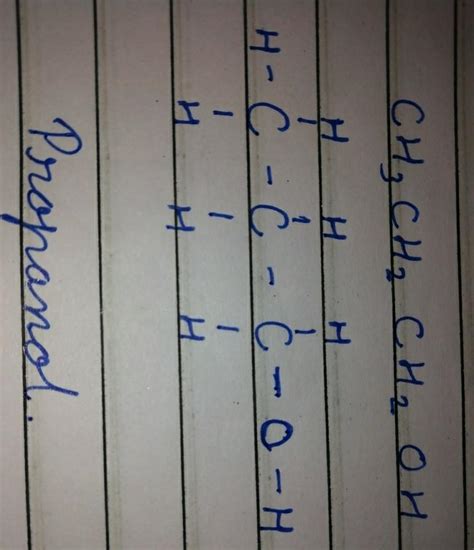 CH₃CH₂ CH₂ OH
H H H
H - C - C - C - O - H
H H H
Propanol.